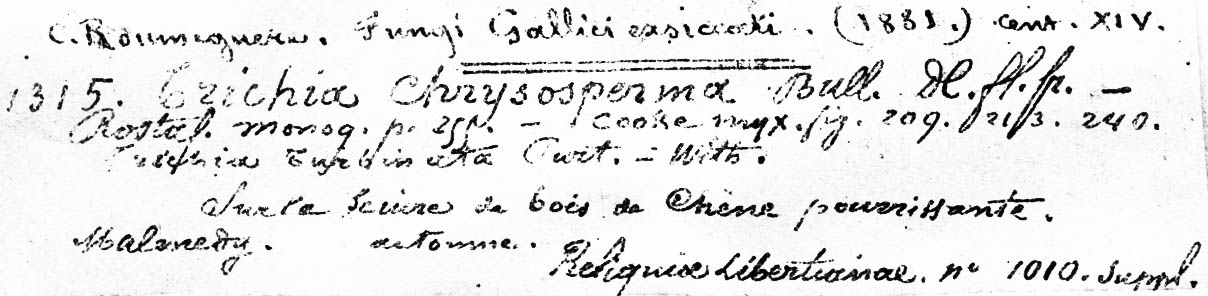 C. Roumeguere. Fungi Gallici exsiccati. (1881.) cent. XIV.
1315. Trichia Chrysosperma Bull. Dl. fl. fr. —
Rostaf. monog. p. 255. — Cooke myx. fig. 209. 213. 240.
Trichia turbinata Curt. — With.
Sur la Sciure de bois de Chêne pourrissante.
Malmedy. automne.
Reliquiae Libertianae. n° 1010. Suppl.